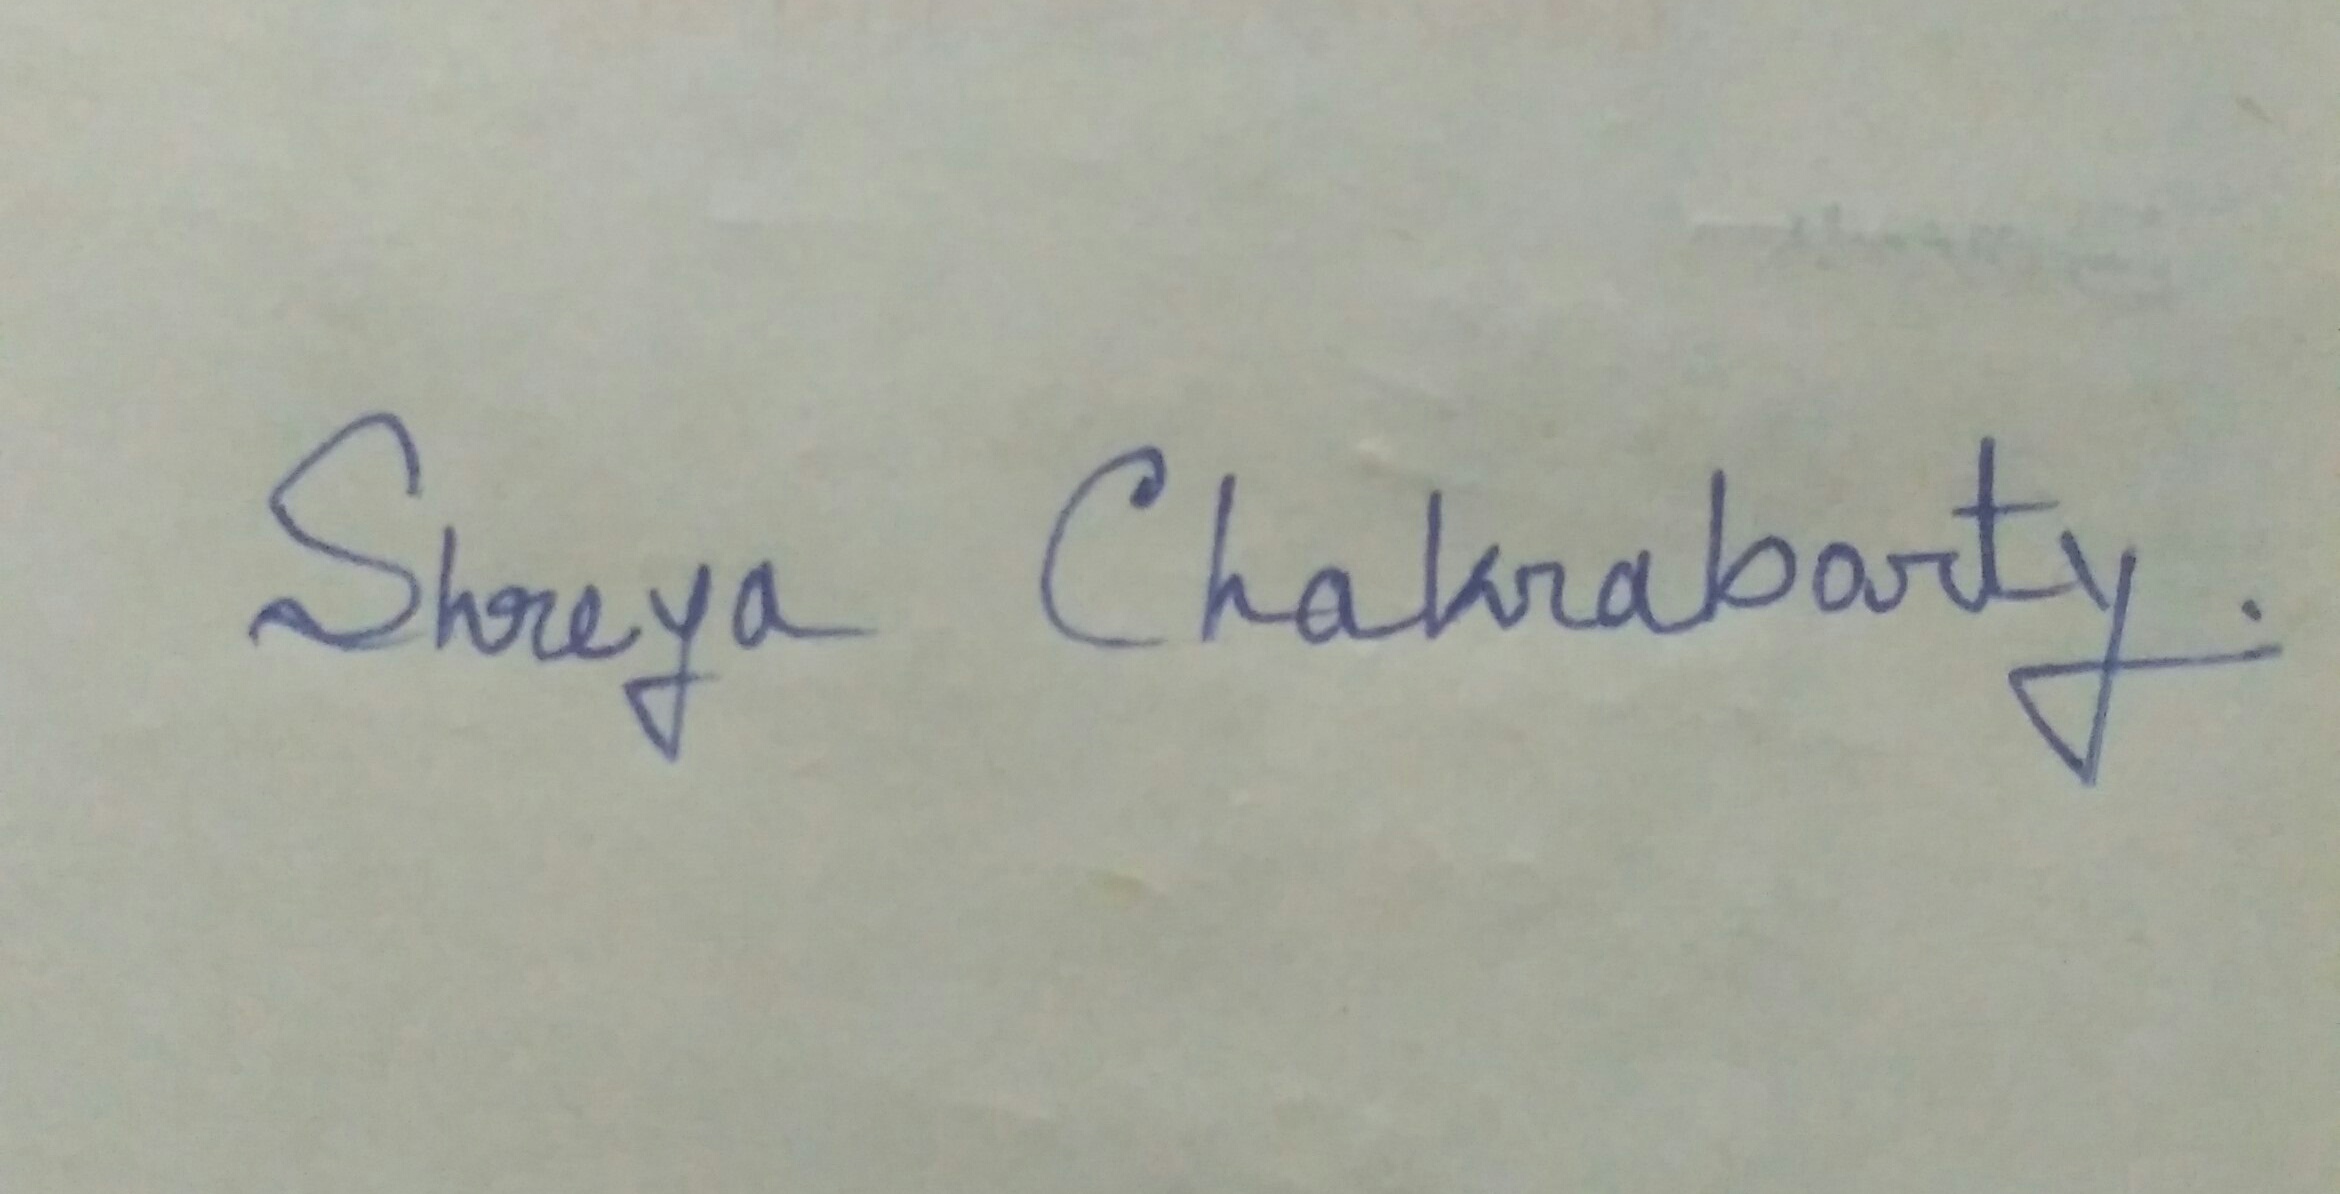 Shreya Chakrabarty.